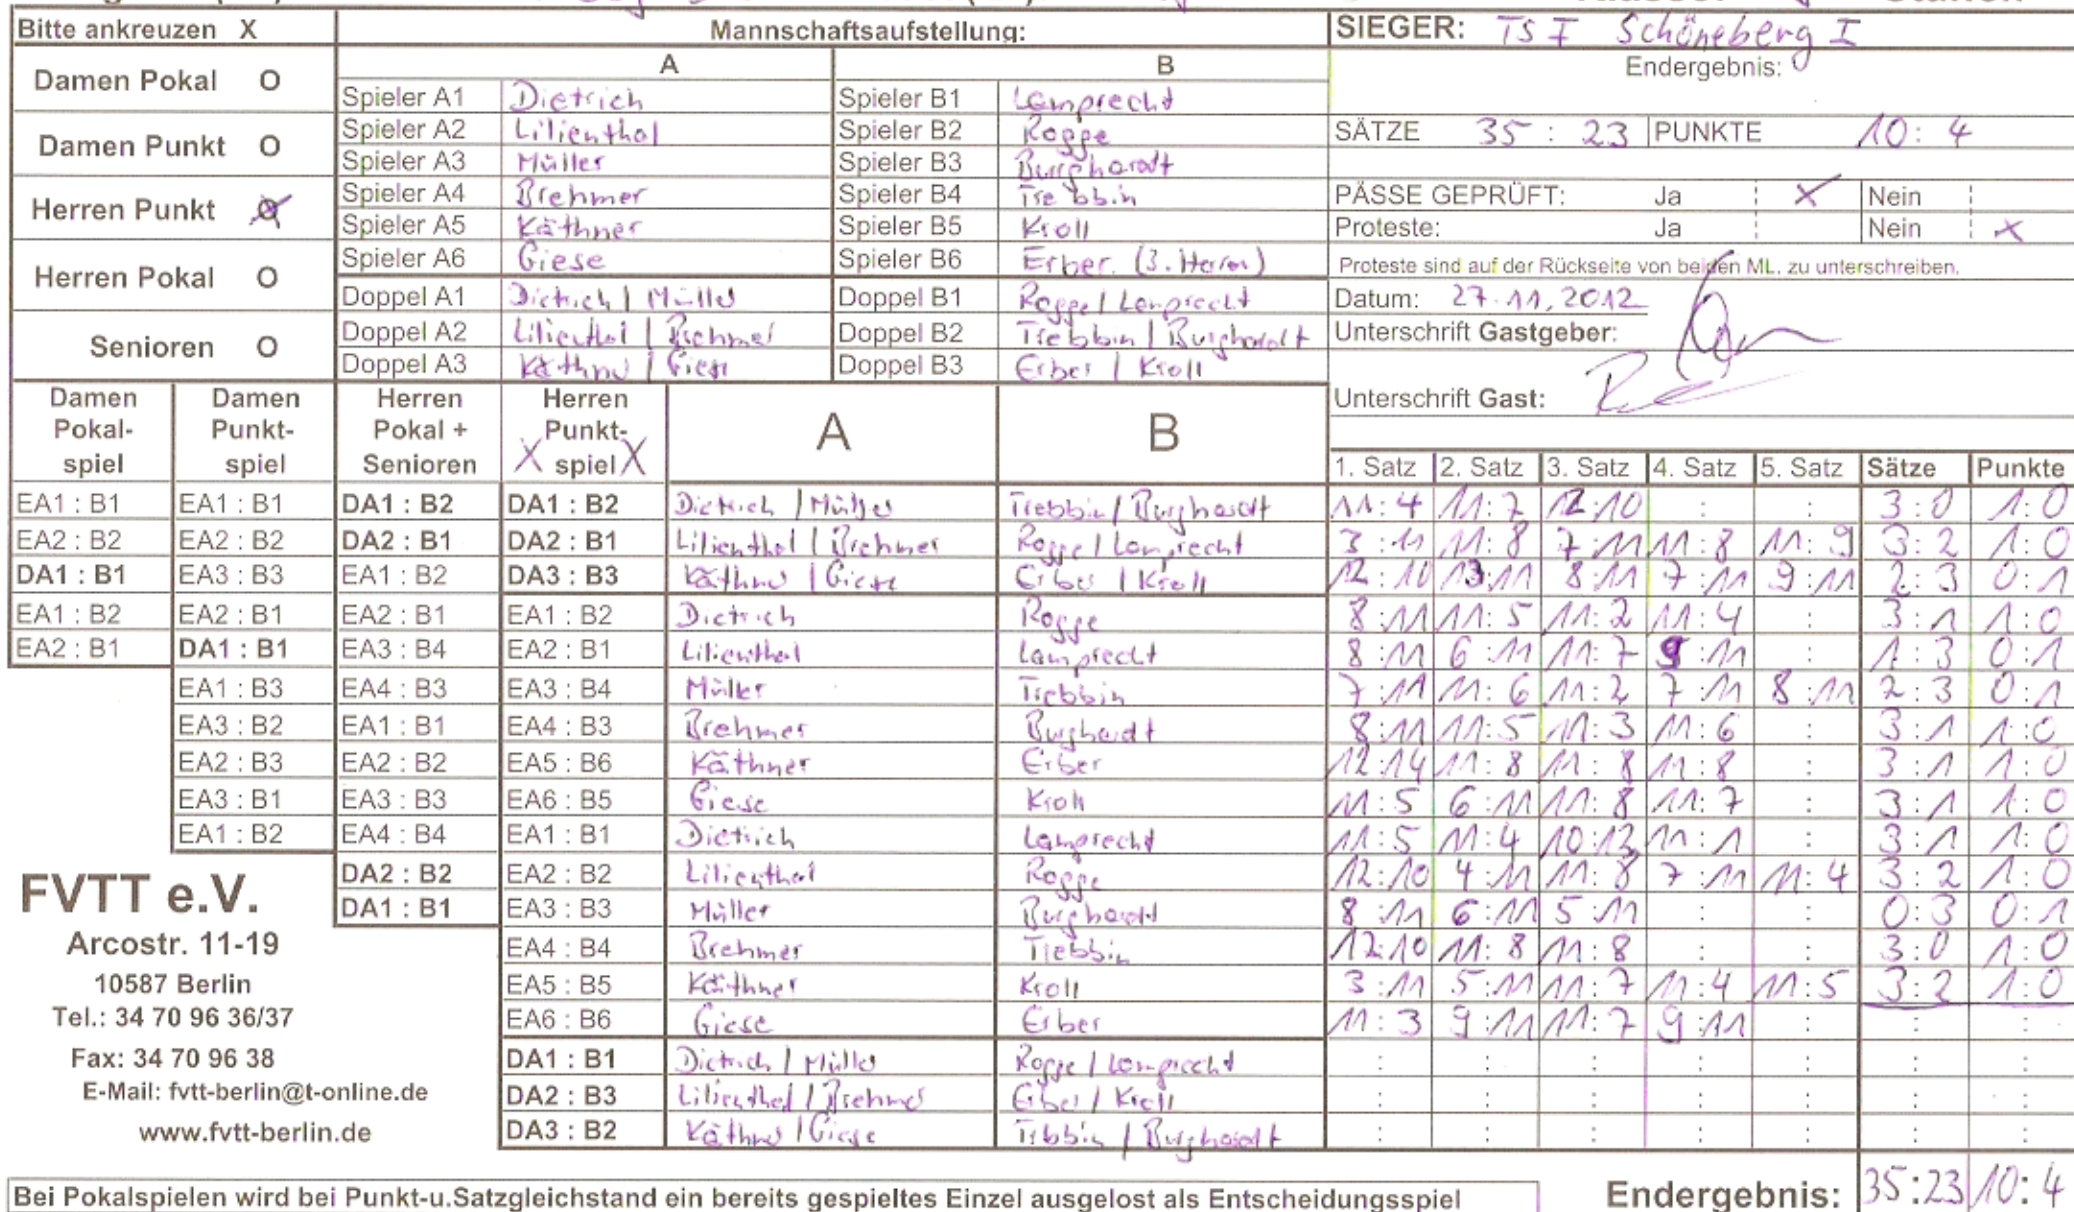 Bitte ankreuzen X
Mannschaftsaufstellung:
SIEGER: TSF Schöneberg I
Endergebnis:
Damen Pokal O
Damen Punkt O
Herren Punkt O X
Herren Pokal O
Senioren O
A B
Spieler A1 Dietrich Spieler B1 Lamprecht
Spieler A2 Lilienthal Spieler B2 Rogge
Spieler A3 Müller Spieler B3 Burghardt
Spieler A4 Brehmer Spieler B4 Trebbin
Spieler A5 Käthner Spieler B5 Kroll
Spieler A6 Giese Spieler B6 Erber (3. Herren)
Doppel A1 Dietrich / Müller Doppel B1 Rogge / Lamprecht
Doppel A2 Lilienthal / Brehmer Doppel B2 Trebbin / Burghardt
Doppel A3 Käthner / Giese Doppel B3 Erber / Kroll
SÄTZE 35 : 23 PUNKTE 10 : 4
PÄSSE GEPRÜFT: Ja X Nein
Proteste: Ja Nein X
Proteste sind auf der Rückseite von beiden ML. zu unterschreiben.
Datum: 27.11.2012
Unterschrift Gastgeber:
Unterschrift Gast:
Damen Pokal-spiel Damen Punkt-spiel Herren Pokal + Senioren X Herren Punkt-spiel X A B 1. Satz 2. Satz 3. Satz 4. Satz 5. Satz Sätze Punkte
EA1 : B1 EA1 : B1 DA1 : B2 DA1 : B2 Dietrich / Müller Trebbin / Burghardt 11:4 11:7 12:10 : : 3:0 1:0
EA2 : B2 EA2 : B2 DA2 : B1 DA2 : B1 Lilienthal / Brehmer Rogge / Lamprecht 3:11 11:8 7:11 11:8 11:9 3:2 1:0
DA1 : B1 EA3 : B3 EA1 : B2 DA3 : B3 Käthner / Giese Erber / Kroll 12:10 13:11 8:11 7:11 9:11 2:3 0:1
EA1 : B2 EA2 : B1 EA2 : B1 EA1 : B2 Dietrich Rogge 8:11 11:5 11:2 11:4 : 3:1 1:0
EA2 : B1 DA1 : B1 EA3 : B4 EA2 : B1 Lilienthal Lamprecht 8:11 6:11 11:7 9:11 : 1:3 0:1
EA1 : B3 EA4 : B3 EA3 : B4 Müller Trebbin 7:11 11:6 11:2 7:11 8:11 2:3 0:1
EA3 : B2 EA1 : B1 EA4 : B3 Brehmer Burghardt 8:11 11:5 11:3 11:6 : 3:1 1:0
EA2 : B3 EA2 : B2 EA5 : B6 Käthner Erber 12:14 11:8 11:8 11:8 : 3:1 1:0
EA3 : B1 EA3 : B3 EA6 : B5 Giese Kroll 11:5 6:11 11:8 11:7 : 3:1 1:0
EA1 : B2 EA4 : B4 EA1 : B1 Dietrich Lamprecht 11:5 11:4 10:12 11:1 : 3:1 1:0
DA2 : B2 EA2 : B2 Lilienthal Rogge 12:10 4:11 11:8 7:11 11:4 3:2 1:0
DA1 : B1 EA3 : B3 Müller Burghardt 8:11 6:11 5:11 : : 0:3 0:1
EA4 : B4 Brehmer Trebbin 12:10 11:8 11:8 : : 3:0 1:0
EA5 : B5 Käthner Kroll 3:11 5:11 11:7 11:4 11:5 3:2 1:0
EA6 : B6 Giese Erber 11:3 9:11 11:7 9:11 : : :
DA1 : B1 Dietrich / Müller Rogge / Lamprecht : : : : : : :
DA2 : B3 Lilienthal / Brehmer Erber / Kroll : : : : : : :
DA3 : B2 Käthner / Giese Trebbin / Burghardt : : : : : : :
FVTT e.V.
Arcostr. 11-19
10587 Berlin
Tel.: 34 70 96 36/37
Fax: 34 70 96 38
E-Mail: fvtt-berlin@t-online.de
www.fvtt-berlin.de
Bei Pokalspielen wird bei Punkt-u.Satzgleichstand ein bereits gespieltes Einzel ausgelost als Entscheidungsspiel
Endergebnis: 35:23 10:4